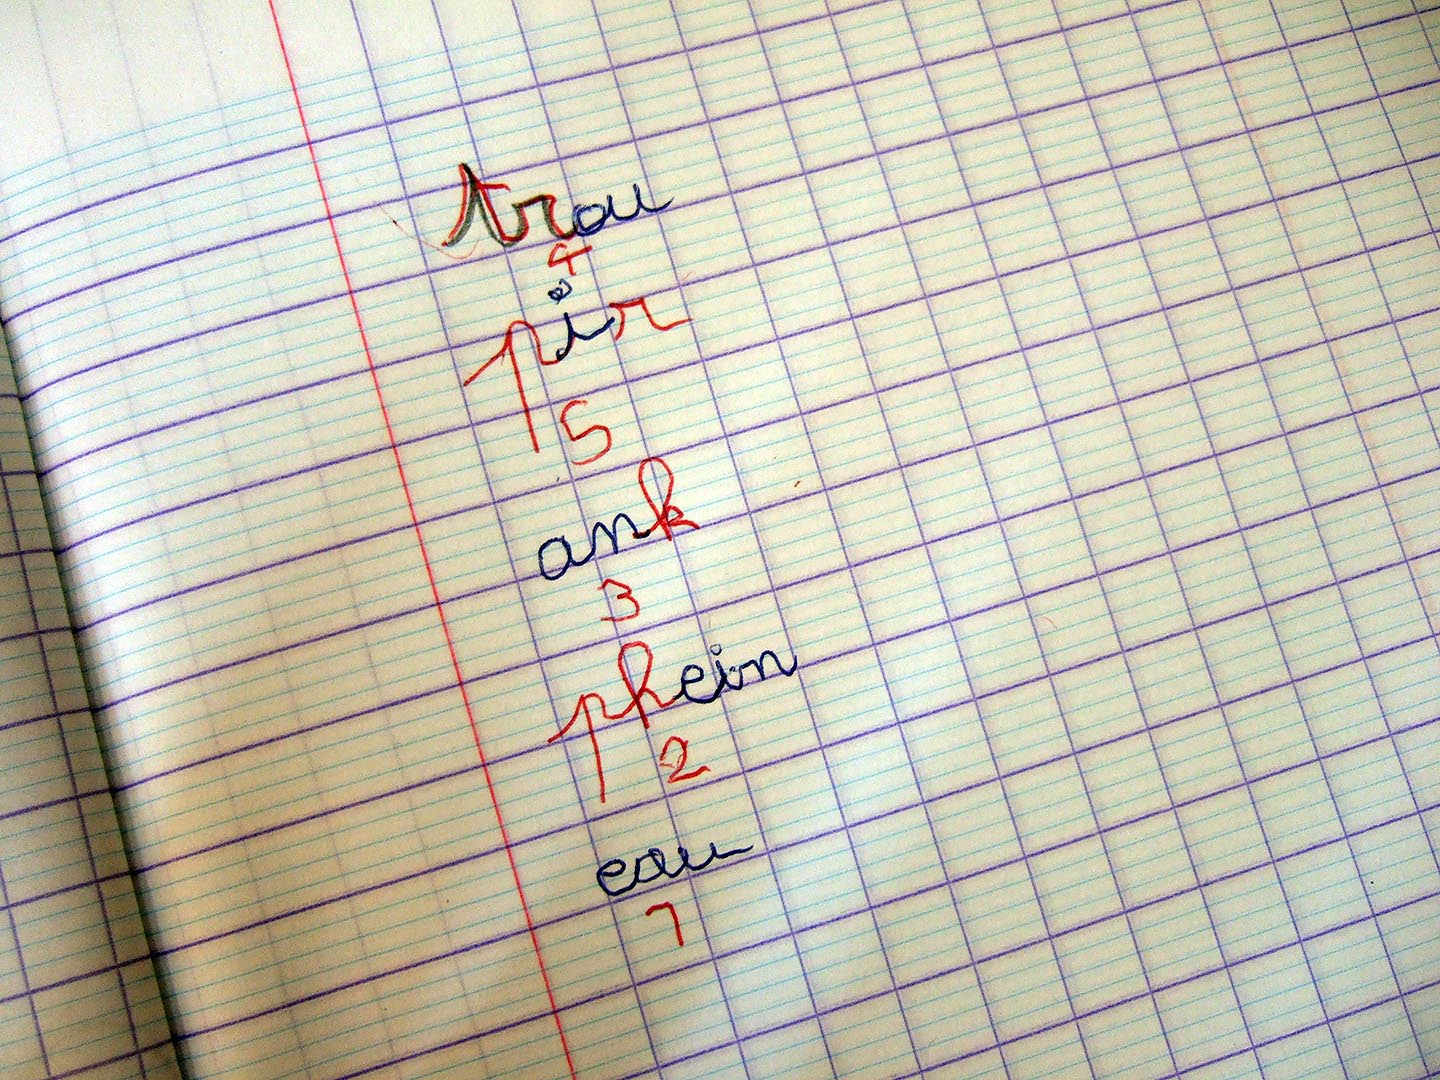 trou
4
pir
5
ank
3
phein
2
eau
1